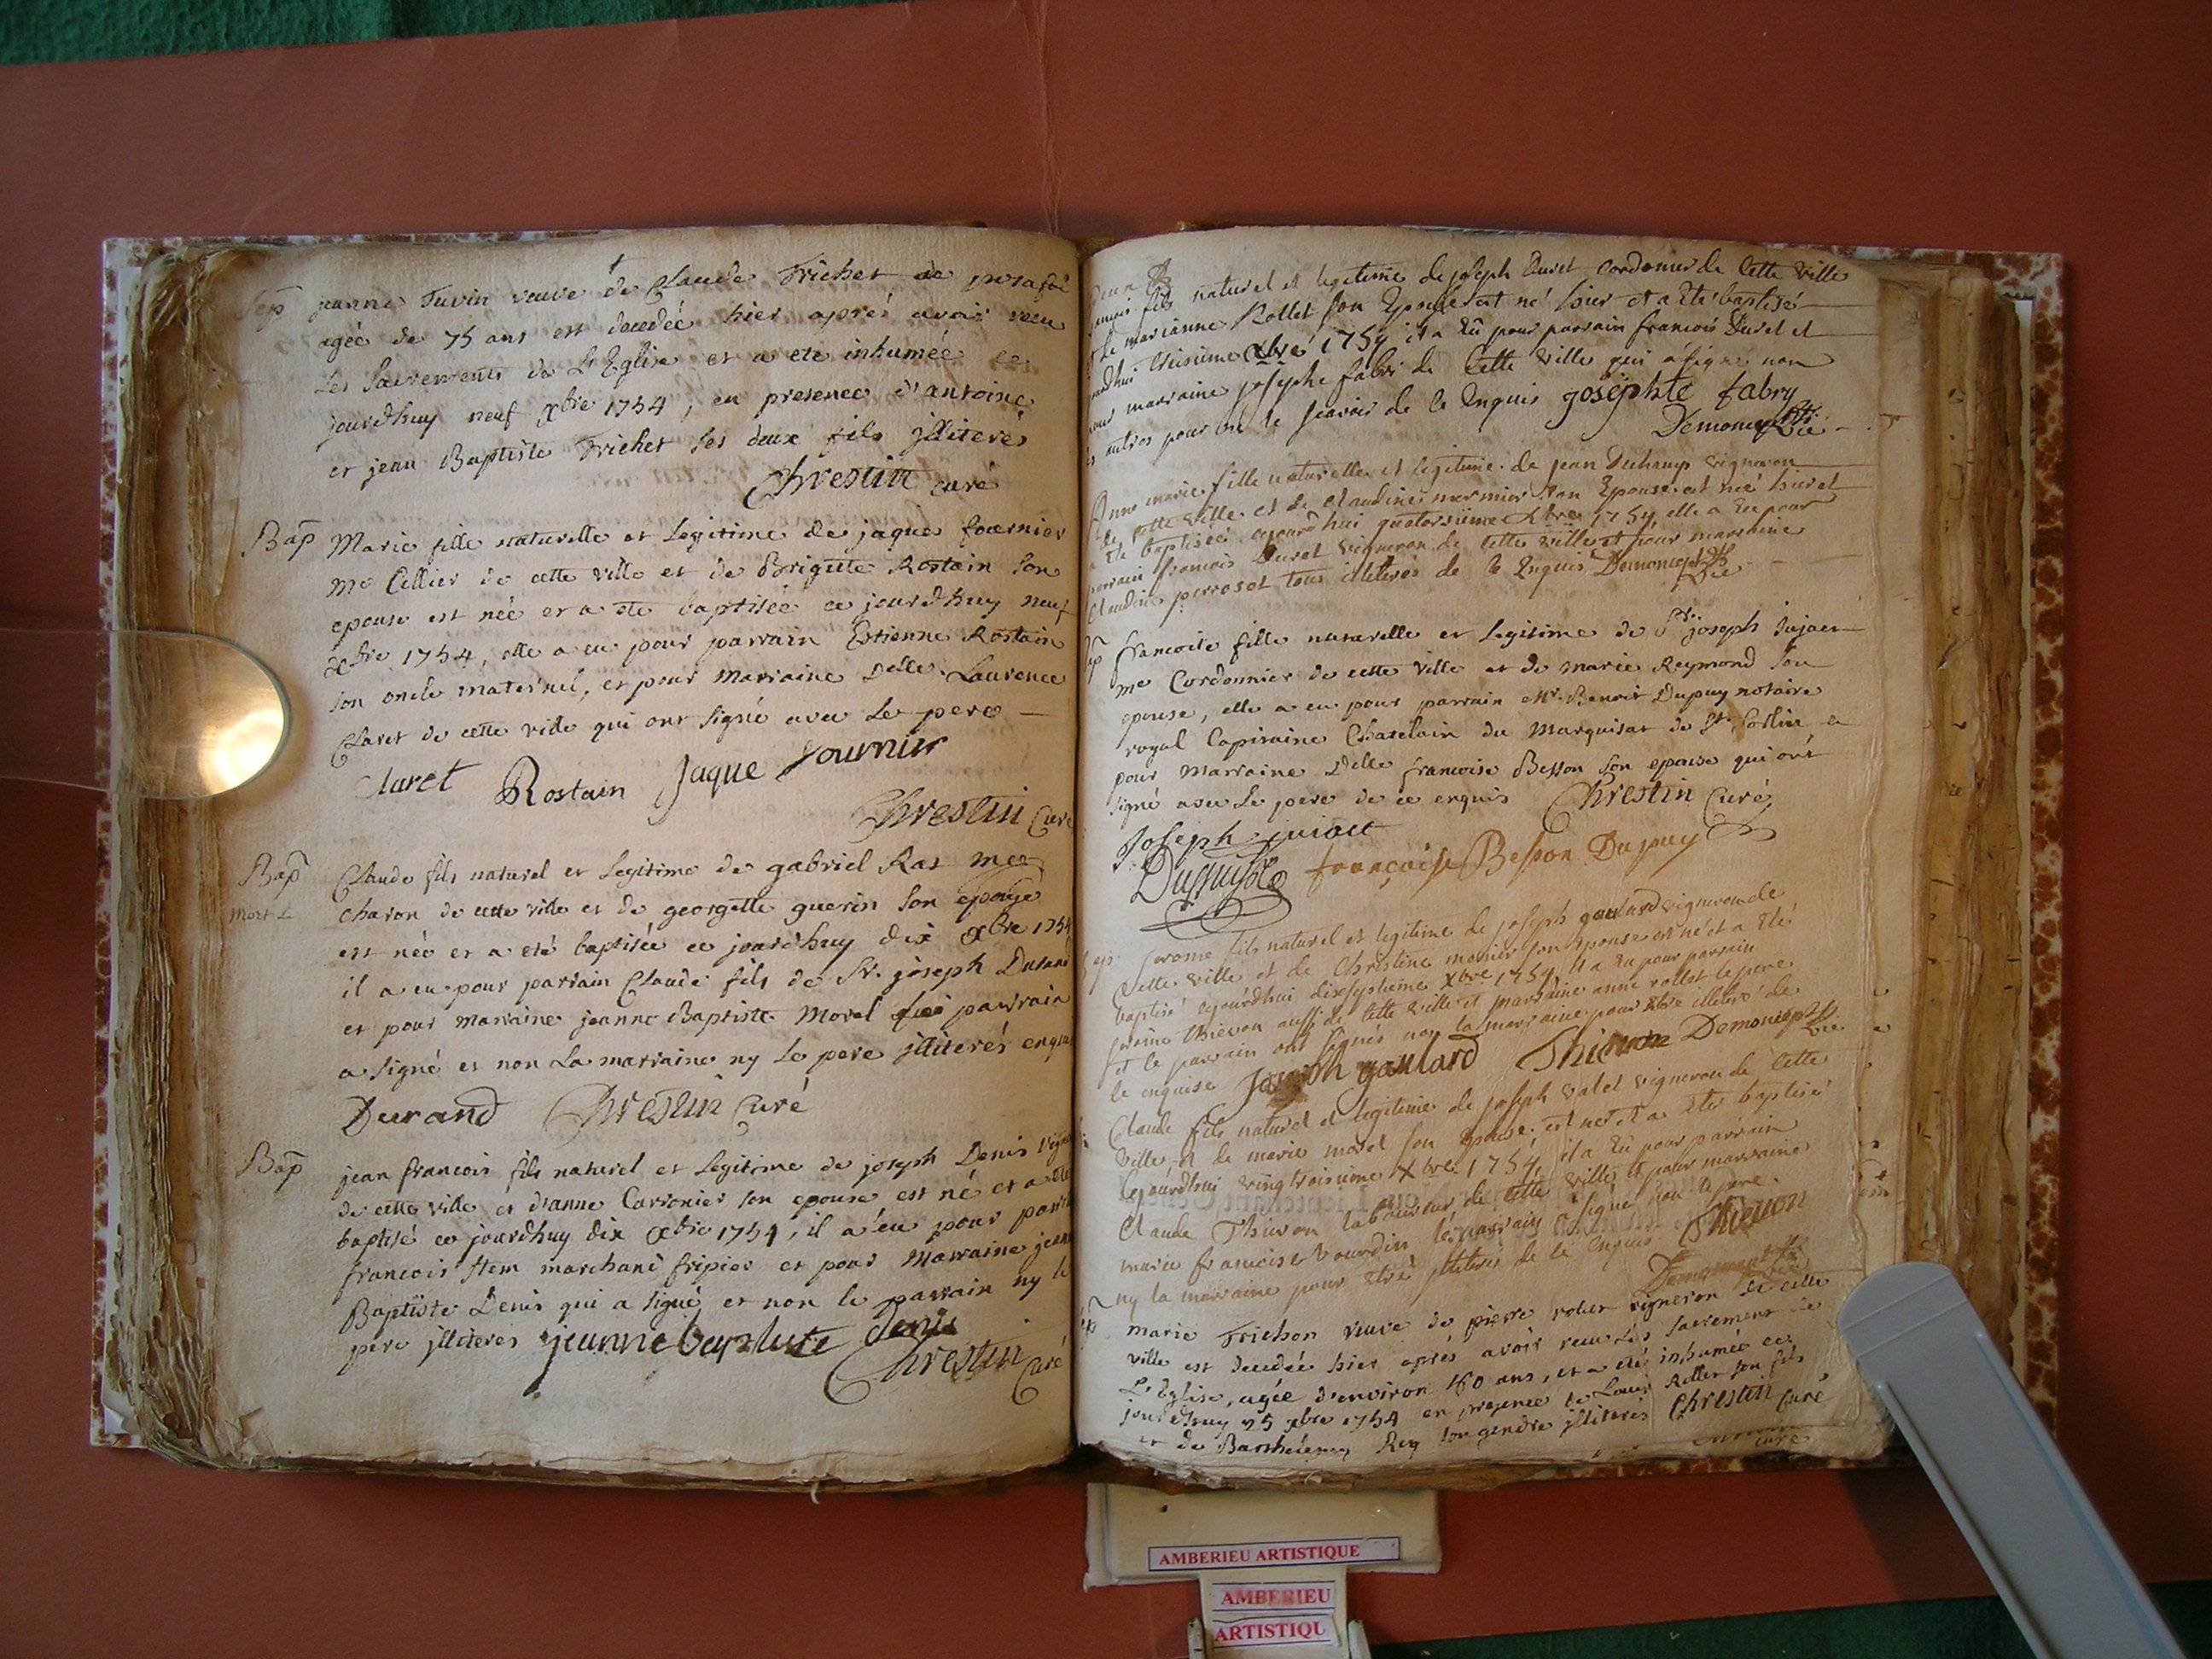 Sep jeanne Tuvin veuve de Claude Trichet de
agée de 75 ans est decedée hier aprés avoir recu
Les Sacrements de L'Eglise et a ete inhumée ce
jourdhuy neuf xbre 1754, en presence d'antoine
et jean Baptiste Trichet ses deux fils jlliterés
Chrestin curé
Bap Marie fille naturelle et Legitime de jaques fournier
Me Cellier de cette ville et de Brigitte Rostain son
epouse est née et a ete baptisée ce jourdhuy neuf
xbre 1754, elle a eu pour parrain Estienne Rostain
son oncle maternel, et pour Marraine Delle Laurence
Claret de cette ville qui ont signé avec Le pere
Claret Rostain Jaque fournier
Chrestin Curé
Bap Claude fils naturel et Legitime de gabriel Ras Me
Mort
charon de cette ville et de georgette guerin son epouse
est née et a eté baptisée ce jourdhuy dix xbre 1754
il a eu pour parrain Claude fils de Sr. joseph Durand
et pour Marraine jeanne Baptiste Morel parrain
a signé et non La marraine ny Le pere jlliterés
Durand Chrestin Curé
Bap jean francois fils naturel et Legitime de joseph Denis
de cette ville et d'anne Carronier son epouse est né et a eté
baptisé ce jourdhuy dix xbre 1754, il a eu pour
francois Item marchand fripier et pour Marraine
Baptiste Denis qui a signé et non le parrain ny le
pere jlliteres jeanne baptiste denis
Chrestin Curé
fils naturel et legitime de joseph Duret Cordonier de Cette Ville
de marianne Rollet son Epouse est né hier et a Eté baptisé
treisieme Xbre 1754 il a Eû pour parrain francois Duret et
marraine josephe fabri de Cette ville qui a signé non
autres pour ne le scavoir de ce Enquis josephte fabry
Demoncept
Anne marie fille naturelle et legitime de jean Duchamp vigneron
de cette ville et de Claudine marmier son Epouse est née hier et
a Eté baptisée ajourdhui quatorzieme Xbre 1754 elle a Eu pour
parrain francois Duret vigneron de Cette ville et pour marraine
Claudine perroset tous illiterés de ce Enquis Demoncept
francoise fille naturelle et Legitime de Sr. joseph
me Cordonnier de cette ville et de marie Reymond son
epouse, elle a eu pour parrain Mr. Benoit Dupuy notaire
royal Capitaine Chatelain du Marquisat de St. Sorlin et
pour Marraine Delle francoise Besson son epouse qui ont
signé avec Le pere de ce enquis Chrestin Curé
Joseph
Dupuy françoise Besson Dupuy
fils naturel et legitime de joseph gaulard vigneron de
Cette ville et de Christine monier son Epouse est né et a Eté
baptisé ajourdhui dixseptieme Xbre 1754, il a Eu pour parrain
Thievon aussi de Cette ville et marraine anne rollet le pere
et le parrain ont signés non la marraine pour Etre illiteré de
ce enquise Joseph gaulard Thievon Demoncept
Claude fils naturel et legitime de joseph valet vigneron de Cette
ville et de marie morel son Epouse est né et a Eté baptisé
Cejourdhui vingtroisieme Xbre 1754, il a Eu pour parrain
Claude Thievon laboureur de Cette ville et pour marraine
marie francoise bourdin le parrain a signé non le pere
ny la marraine pour Etre jlliterés de ce Enquis Thievon
Demoncept
marie Trichon veuve de pierre rollet vigneron de cette
ville est decedée hier aprés avoir recu Les sacrements de
L'Eglise, agée d'environ 60 ans, et a eté inhumée ce
jourdhuy 25 xbre 1754 en presence de Louis Rollet son fils
et de Barthelemy Rey son gendre jlliterés Chrestin Curé
curé
AMBERIEU ARTISTIQUE
AMBERIEU
ARTISTIQU